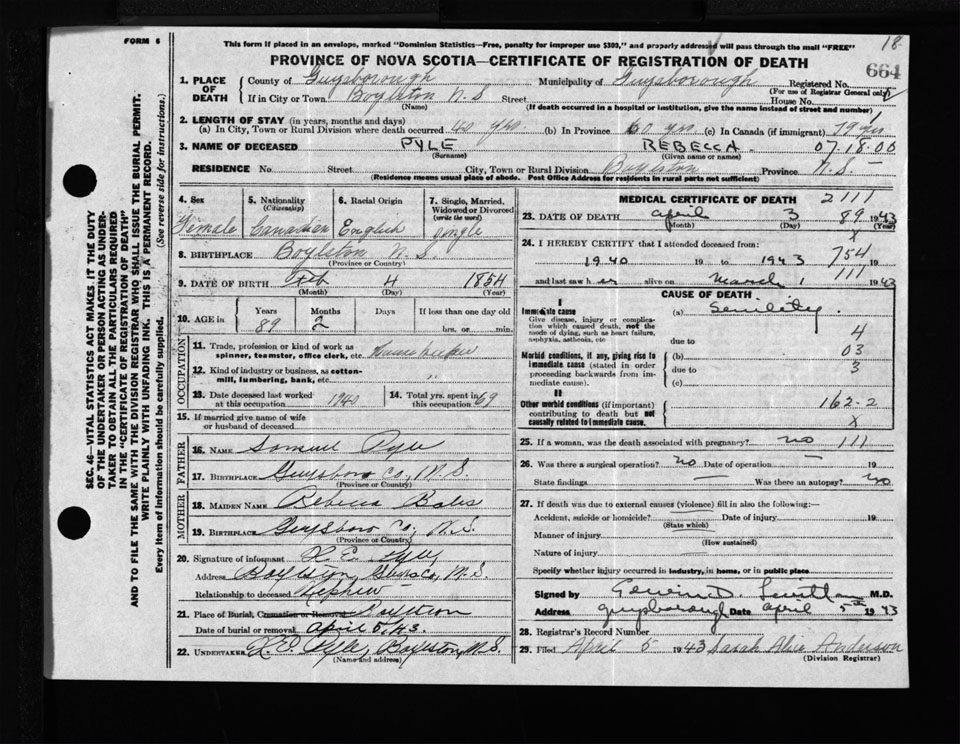 FORM 6
This form if placed in an envelope, marked "Dominion Statistics—Free, penalty for improper use $300," and properly addressed will pass through the mail "FREE"
18
PROVINCE OF NOVA SCOTIA—CERTIFICATE OF REGISTRATION OF DEATH
664
1. PLACE OF DEATH
County of Guysborough Municipality of Guysborough Registered No.
(For use of Registrar General only)
If in City or Town Boylston N.S Street House No.
(Name) (If death occurred in a hospital or institution, give the name instead of street and number)
2. LENGTH OF STAY (in years, months and days)
(a) In City, Town or Rural Division where death occurred 40 yrs (b) In Province 60 yrs (c) In Canada (if immigrant)
3. NAME OF DECEASED PYLE REBECCA. 07.18.00
(Surname) (Given name or names)
RESIDENCE No. Street City, Town or Rural Division Boylston Province N.S.
(Residence means usual place of abode. Post Office Address for residents in rural parts not sufficient)
4. Sex
Female
5. Nationality
(Citizenship)
Canadian
6. Racial Origin
English
7. Single, Married, Widowed or Divorced
(write the word)
single
8. BIRTHPLACE Boylston N.S.
(Province or Country)
9. DATE OF BIRTH Feb 4 1854
(Month) (Day) (Year)
10. AGE
Years Months Days If less than one day old
89 2 - hrs. or min.
OCCUPATION
11. Trade, profession or kind of work as spinner, teamster, office clerk, etc. Housekeeper
12. Kind of industry or business, as cotton-mill, lumbering, bank, etc. "
13. Date deceased last worked at this occupation 1940
14. Total yrs. spent in this occupation 69
15. If married give name of wife or husband of deceased
FATHER
16. NAME Samuel Pyle
17. BIRTHPLACE Guysboro Co., N.S.
(Province or Country)
MOTHER
18. MAIDEN NAME Rebecca
19. BIRTHPLACE Guysboro Co; N.S.
(Province or Country)
20. Signature of informant E. Pyle
Address Boylston, Co., N.S.
Relationship to deceased Nephew
21. Place of Burial, Cremation or Removal Boylston
Date of burial or removal April 5, 43.
22. UNDERTAKER E. Pyle, Boylston, N.S.
(Name and address)
MEDICAL CERTIFICATE OF DEATH 2111
23. DATE OF DEATH April 3 89 1943
(Month) (Day) (Year)
X
24. I HEREBY CERTIFY that I attended deceased from:
1940 19 to 1943 19
754
111
and last saw her alive on March 1 1943
CAUSE OF DEATH
I
Immediate cause
Give disease, injury or complication which caused death, not the mode of dying, such as heart failure, asphyxia, asthenia, etc
(a) Senility.
due to 4
Morbid conditions, if any, giving rise to immediate cause (stated in order proceeding backwards from immediate cause).
(b) 03
due to 3
(c)
II
Other morbid conditions (if important) contributing to death but not causally related to immediate cause.
162-2
X
25. If a woman, was the death associated with pregnancy? no 111
26. Was there a surgical operation? no Date of operation — 19
State findings — Was there an autopsy? no
27. If death was due to external causes (violence) fill in also the following:—
Accident, suicide or homicide? Date of injury 19
(State which)
Manner of injury
(How sustained)
Nature of injury
Specify whether injury occurred in industry, in home, or in public place
Signed by M.D.
Address Guysborough Date April 5th 1943
28. Registrar's Record Number
29. Filed April 5 1943 Sarah Alice Anderson
(Division Registrar)
SEC. 46—VITAL STATISTICS ACT MAKES IT THE DUTY
OF THE UNDERTAKER OR PERSON ACTING AS UNDERTAKER TO OBTAIN ALL THE PARTICULARS REQUIRED
IN THE "CERTIFICATE OF REGISTRATION OF DEATH"
AND TO FILE THE SAME WITH THE DIVISION REGISTRAR WHO SHALL ISSUE THE BURIAL PERMIT.
WRITE PLAINLY WITH UNFADING INK. THIS IS A PERMANENT RECORD.
Every item of information should be carefully supplied. (See reverse side for instructions.)